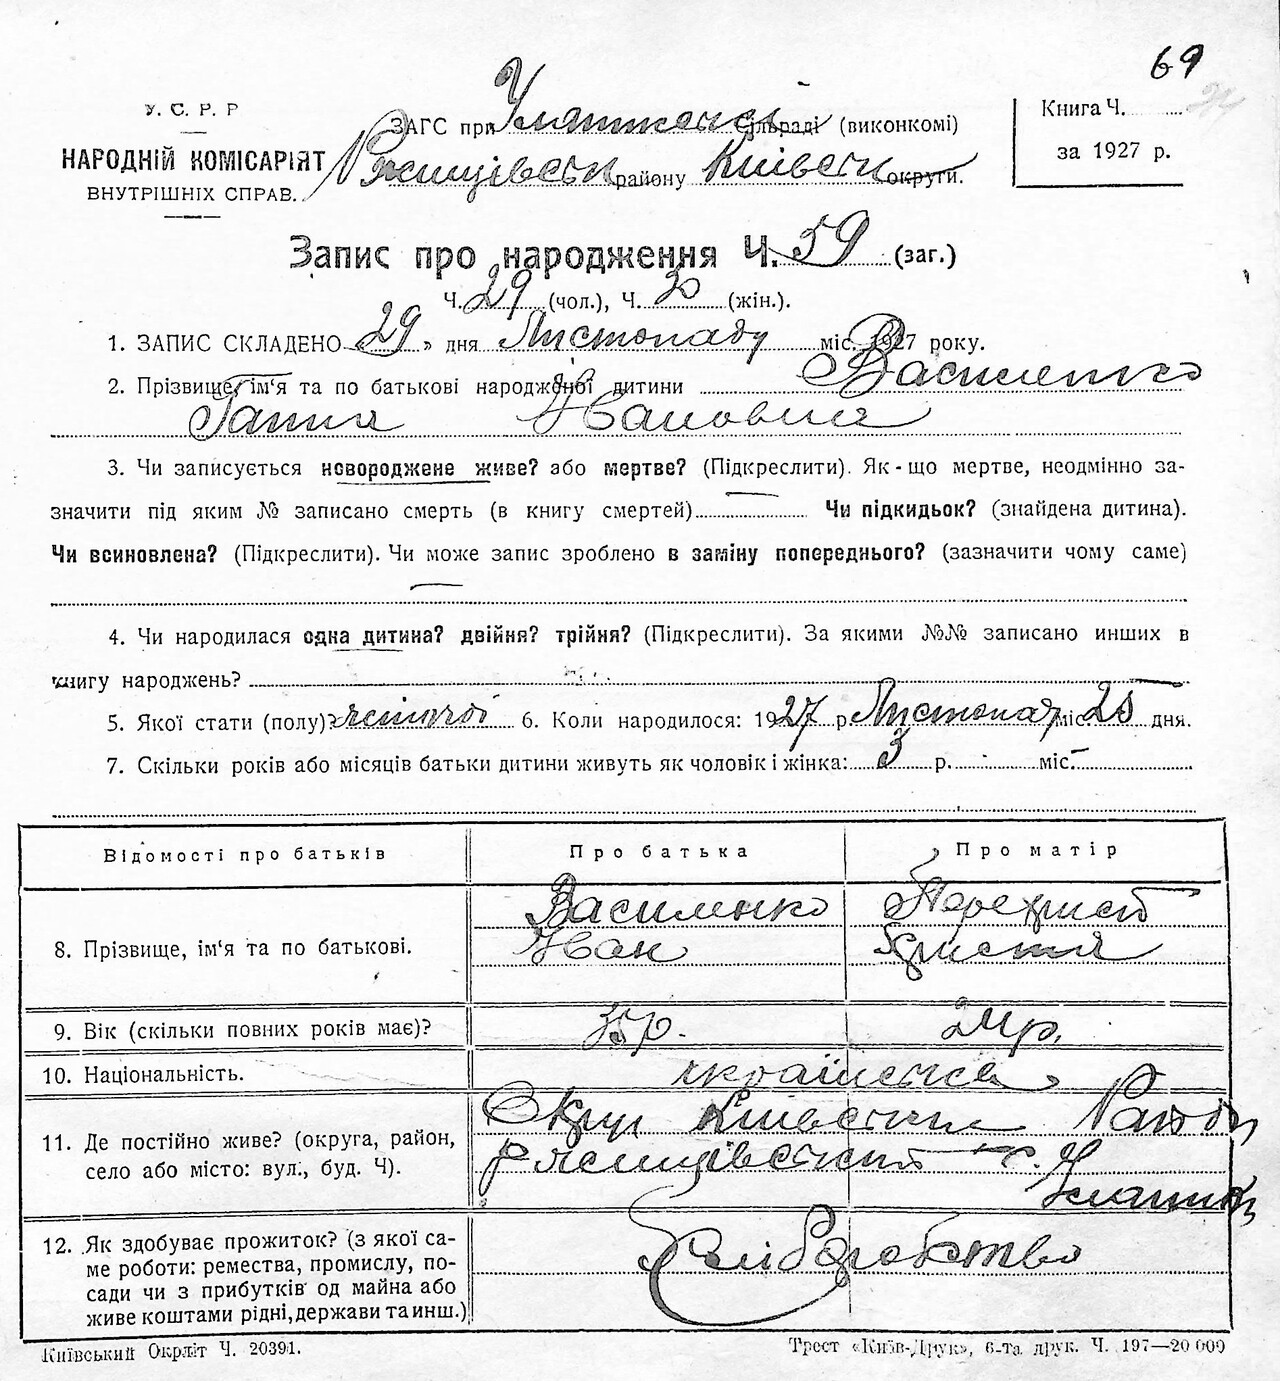 69
У. С. Р. Р
НАРОДНІЙ КОМІСАРІЯТ
ВНУТРІШНІХ СПРАВ.
ЗАГС при сільраді (виконкомі)
району Київськ округи.
Книга Ч.
за 1927 р.
Запис про народження Ч. 59 (заг.)
Ч. 29 (чол.), Ч. 30 (жін.).
1. ЗАПИС СКЛАДЕНО 29 » дня Листопаду міс. 1927 року.
2. Прізвище, ім'я та по батькові народженої дитини Василенко
Ганна Івановна
3. Чи записується новороджене живе? або мертве? (Підкреслити). Як-що мертве, неодмінно за-
значити під яким № записано смерть (в книгу смертей) Чи підкидьок? (знайдена дитина).
Чи всиновлена? (Підкреслити). Чи може запис зроблено в заміну попереднього? (зазначити чому саме)
4. Чи народилася одна дитина? двійня? трійня? (Підкреслити). За якими №№ записано инших в
книгу народжень?
5. Якої стати (полу)? жіночої 6. Коли народилося: 1927 р. Листопад міс. 25 дня.
7. Скільки років або місяців батьки дитини живуть як чоловік і жінка: 3 р. міс.
Відомості про батьків Про батька Про матір
8. Прізвище, ім'я та по батькові.
Василенко
Іван
Христя
9. Вік (скільки повних років має)? 35р. 24р.
10. Національність. українська
11. Де постійно живе? (округа, район,
село або місто: вул., буд. Ч).
Округ Київськ Район
12. Як здобуває прожиток? (з якої са-
ме роботи: ремества, промислу, по-
сади чи з прибутків од майна або
живе коштами рідні, держави та инш.)
Хліборобство
Київський Окрліт Ч. 20391.
Трест «Київ-Друк», 6-та друк. Ч. 197—20 000